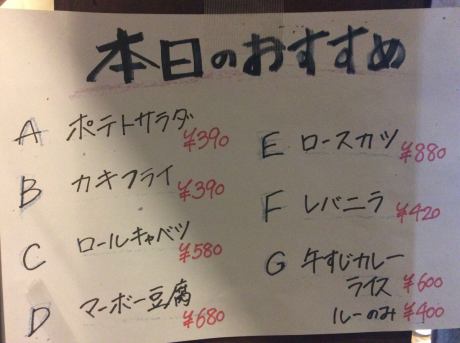 本日のおすすめ
A ポテトサラダ ¥390
B カキフライ ¥390
C ロールキャベツ ¥580
D マーボー豆腐 ¥680
E ロースカツ ¥880
F レバニラ ¥420
G 牛すじカレー
ライス ¥600
ルーのみ ¥400